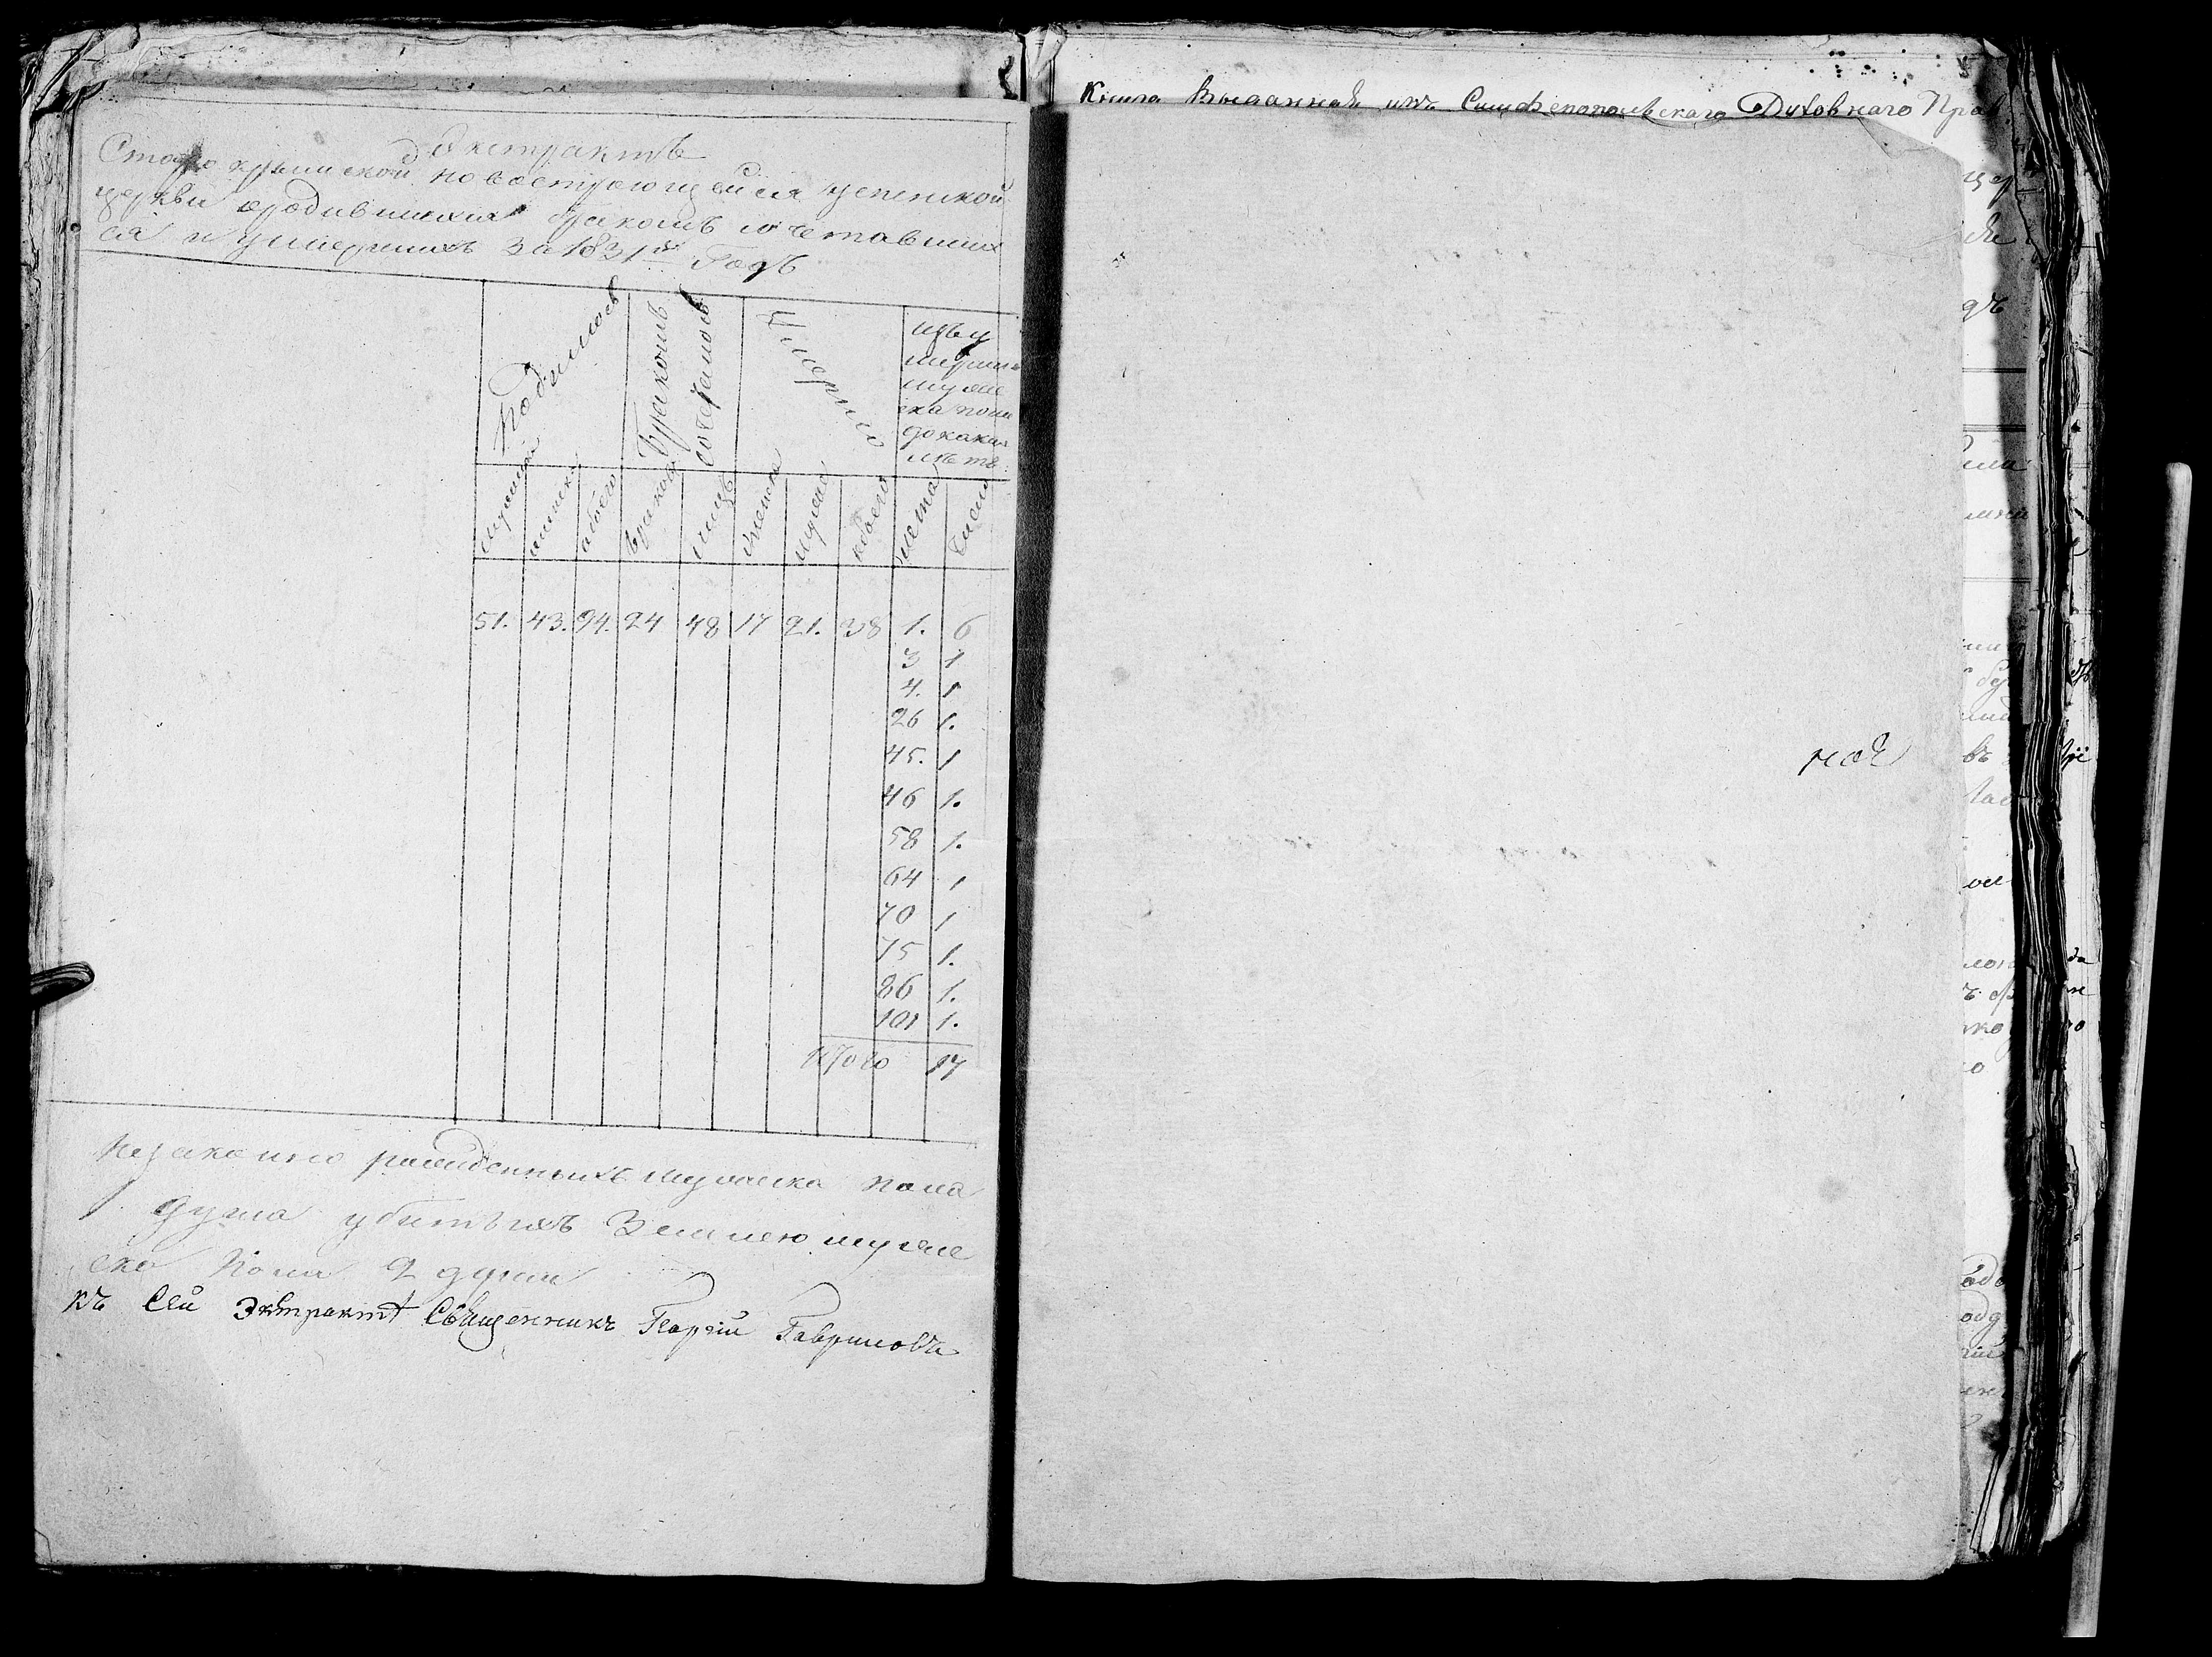 Экстрактъ
Старокрымской новостроющейся успенской
церкви ородившихся бракомъ сочетавших
ся и умершихъ за 1831й Годъ
Родилось
Бракомъ сочеталось
Умерло
изъ у
мерши
муже
ска пола
до каких
летъ
мужска
женска
обоего
браковъ
лицъ
женска
мужска
обоего
лета
число
51. 43. 94. 24 48 17 21. 38 1. 6
3 1
4. 1
26 1.
45. 1
46 1.
58 1.
64 1
70 1
75 1.
86 1.
101 1.
Итого 17
Незаконно рожденныхъ мужска пола
1. душа убитыхъ Землею муже
ска пола 2 души
къ сей Экстрактѣ Священникъ Георгий Гавриловъ
Книга Выданная изъ Симферопольскаго Духовнаго Прав